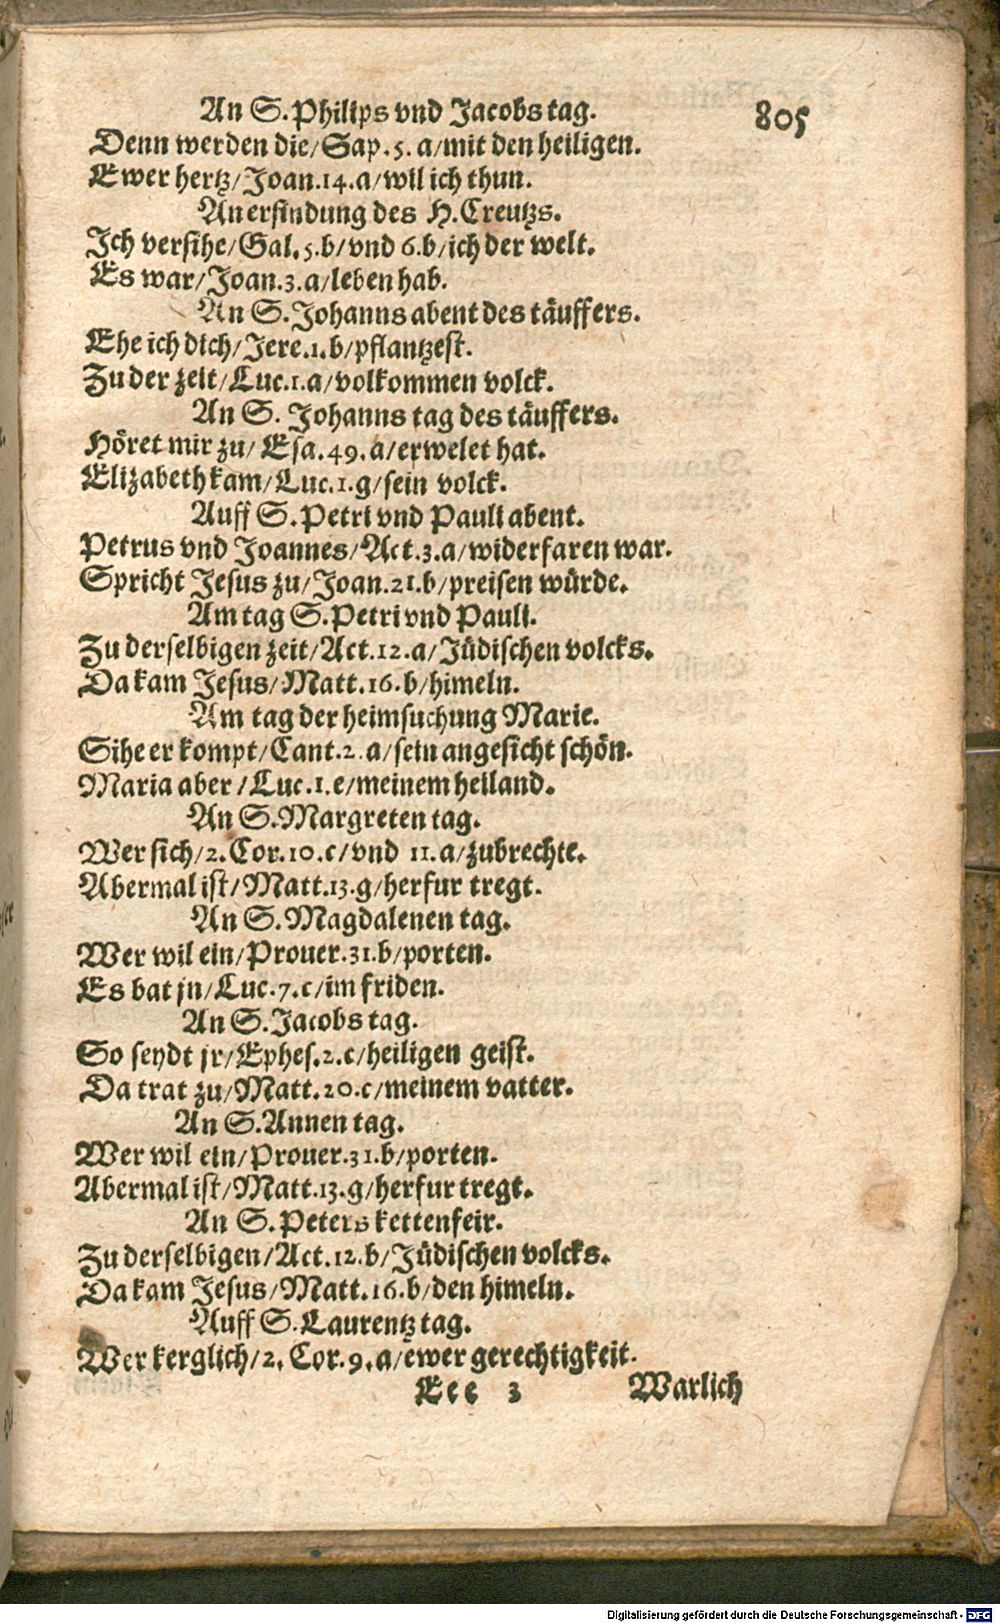 An S. Philips vnd Jacobs tag.
805
Denn werden die/Sap.5.a/mit den heiligen.
Ewer hertz/Joan.14.a/wil ich thun.
An erfindung des H. Creutzs.
Ich versihe/Gal.5.b/vnd 6.b/ich der welt.
Es war/Joan.3.a/leben hab.
An S. Johanns abent des täuffers.
Ehe ich dich/Jere.1.b/pflantzest.
Zu der zeit/Luc.1.a/volkommen volck.
An S. Johanns tag des täuffers.
Höret mir zu/Esa.49.a/erwelet hat.
Elizabeth kam/Luc.1.g/sein volck.
Auff S. Petri vnd Pauli abent.
Petrus vnd Joannes/Act.3.a/widerfaren war.
Spricht Jesus zu/Joan.21.b/preisen würde.
Am tag S. Petri vnd Pauli.
Zu derselbigen zeit/Act.12.a/Jüdischen volcks.
Da kam Jesus/Matt.16.b/himeln.
Am tag der heimsuchung Marie.
Sihe er kompt/Cant.2.a/sein angesicht schön.
Maria aber/Luc.1.e/meinem heiland.
An S. Margreten tag.
Wer sich/2.Cor.10.c/vnd 11.a/zubrechte.
Abermal ist/Matt.13.g/herfur tregt.
An S. Magdalenen tag.
Wer wil ein/Prouer.31.b/porten.
Es bat jn/Luc.7.c/im friden.
An S. Jacobs tag.
So seydt jr/Ephes.2.c/heiligen geist.
Da trat zu/Matt.20.c/meinem vatter.
An S. Annen tag.
Wer wil ein/Prouer.31.b/porten.
Abermal ist/Matt.13.g/herfur tregt.
An S. Peters kettenfeir.
Zu derselbigen/Act.12.b/Jüdischen volcks.
Da kam Jesus/Matt.16.b/den himeln.
Auff S. Laurentz tag.
Wer kerglich/2.Cor.9.a/ewer gerechtigkeit.
Eee 3 Warlich
Digitalisierung gefördert durch die Deutsche Forschungsgemeinschaft - DFG